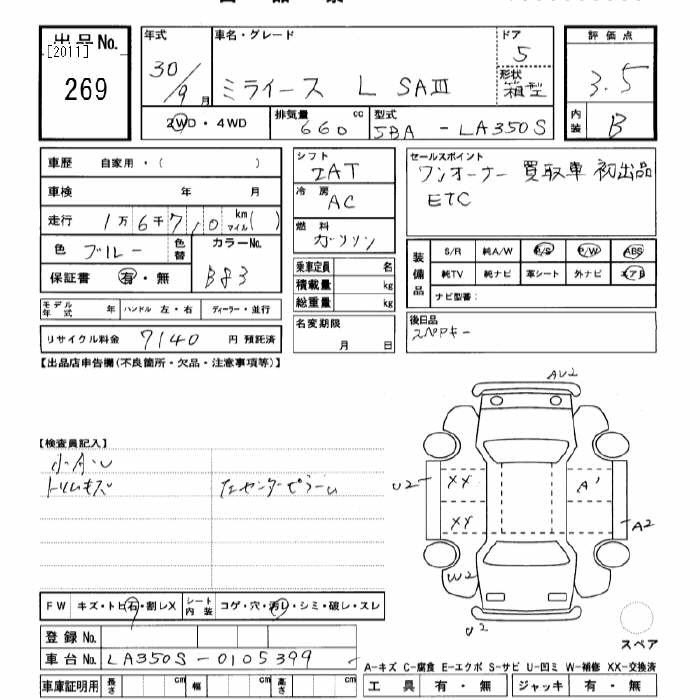 出品No.
[2011]
269
年式
30/9月
車名・グレード
ミライース L SAⅢ
ドア
5
形状
箱型
2WD・4WD
排気量 660 cc
型式 5BA - LA350S
評価点
3.5
内装
B
車歴 自家用・( )
車検 年 月
走行 1万6千7,0 km マイル( )
色 ブルー
色替
カラーNo.
B83
保証書 有・無
モデル年式 年 ハンドル 左・右 ディーラー・並行
リサイクル料金 7140 円 預託済
シフト
IAT
冷房
AC
燃料
ガソリン
乗車定員 名
積載量 kg
総重量 kg
名変期限
月 日
セールスポイント
ワンオーナー 買取車 初出品
ETC
装備品
S/R 純A/W P/S P/W ABS
純TV 純ナビ 革シート 外ナビ エアB
ナビ型番:
後日品
スペアキー
【出品店申告欄(不良箇所・欠品・注意事項等)】
【検査員記入】
小A・U
トリムキズ
左センターピラーU
AU2
U2
XX
A1
XX
A2
W2
U2
スペア
FW キズ・トビ石・割レX
シート内装 コゲ・穴・汚レ・シミ・破レ・スレ
登録No.
車台No. LA350S-0105399
車庫証明用 長さ cm 幅 cm 高さ cm
A-キズ C-腐食 E-エクボ S-サビ U-凹ミ W-補修 XX-交換済
工具 有・無 ジャッキ 有・無